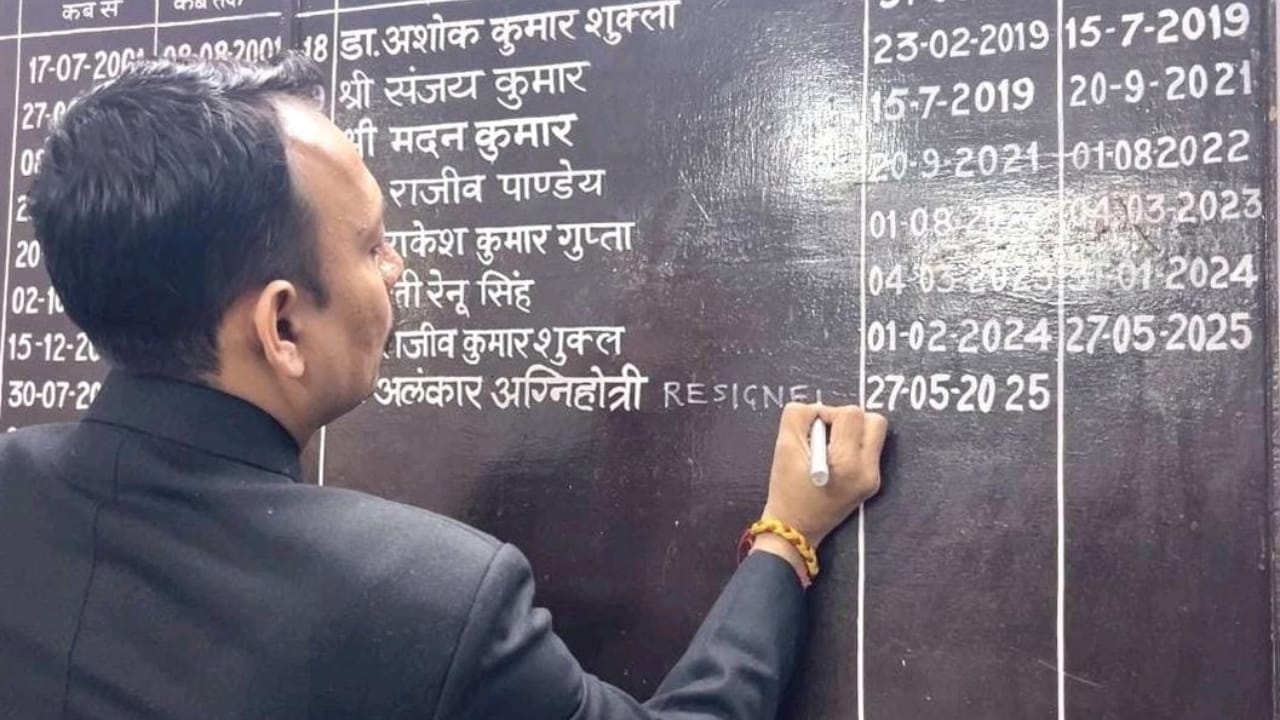 कब से कब तक
17-07-2001 08-08-2001 18 डा.अशोक कुमार शुक्ला 23-02-2019 15-7-2019
श्री संजय कुमार 15-7-2019 20-9-2021
श्री मदन कुमार 20-9-2021 01-082022
राजीव पाण्डेय 01-08-2022 04-03-2023
राकेश कुमार गुप्ता 04-03-2023 31-01-2024
02-10 रेनू सिंह 01-02-2024 27-05-2025
15-12-20 राजीव कुमार शुक्ल
30-07-20 अलंकार अग्निहोत्री RESIGNE 27-05-2025